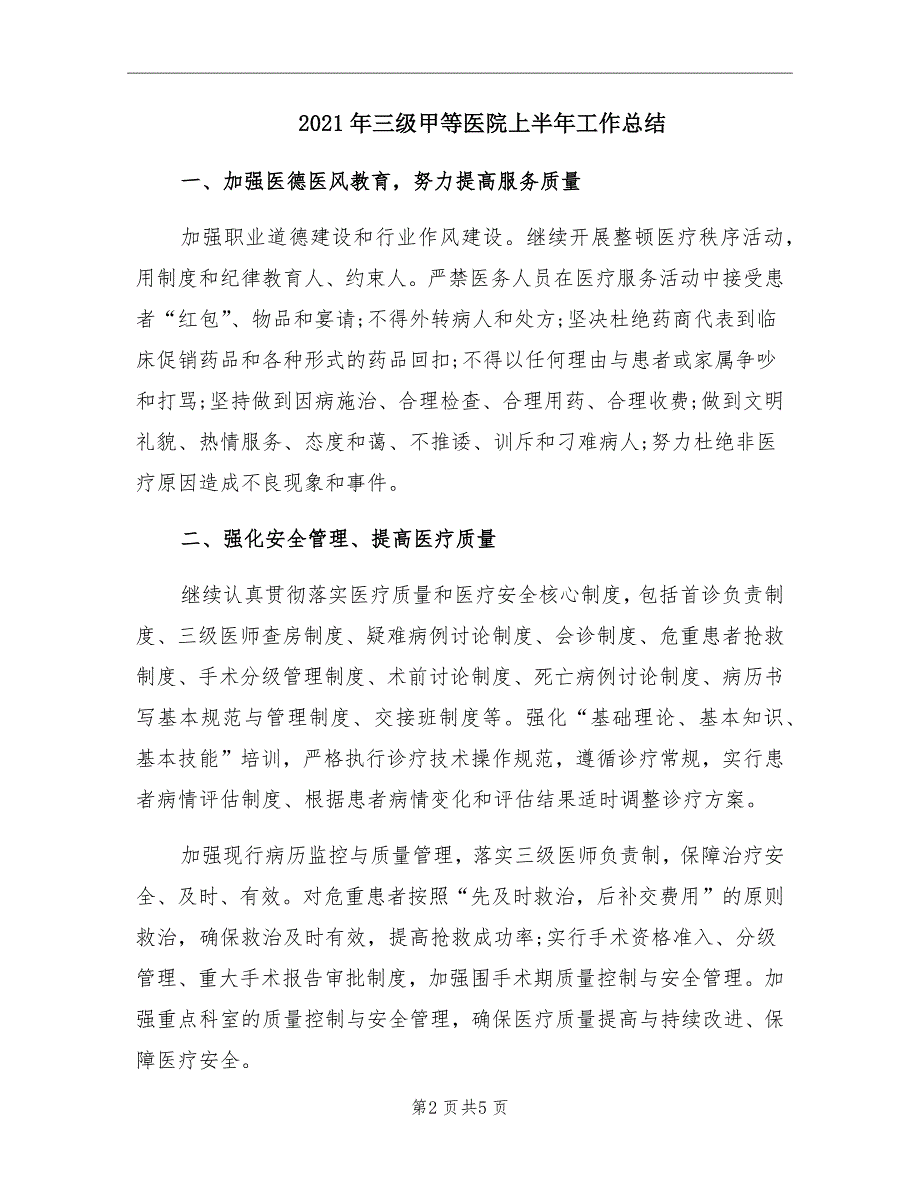 2021 年三级甲等医院上半年工作总结
一、加强医德医风教育，努力提高服务质量
加强职业道德建设和行业作风建设。继续开展整顿医疗秩序活动，
用制度和纪律教育人、约束人。严禁医务人员在医疗服务活动中接受患
者“红包”、物品和宴请;不得外转病人和处方;坚决杜绝药商代表到临
床促销药品和各种形式的药品回扣;不得以任何理由与患者或家属争吵
和打骂;坚持做到因病施治、合理检查、合理用药、合理收费;做到文明
礼貌、热情服务、态度和蔼、不推诿、训斥和刁难病人;努力杜绝非医
疗原因造成不良现象和事件。
二、强化安全管理、提高医疗质量
继续认真贯彻落实医疗质量和医疗安全核心制度，包括首诊负责制
度、三级医师查房制度、疑难病例讨论制度、会诊制度、危重患者抢救
制度、手术分级管理制度、术前讨论制度、死亡病例讨论制度、病历书
写基本规范与管理制度、交接班制度等。强化“基础理论、基本知识、
基本技能”培训，严格执行诊疗技术操作规范，遵循诊疗常规，实行患
者病情评估制度、根据患者病情变化和评估结果适时调整诊疗方案。
加强现行病历监控与质量管理，落实三级医师负责制，保障治疗安
全、及时、有效。对危重患者按照“先及时救治，后补交费用”的原则
救治，确保救治及时有效，提高抢救成功率;实行手术资格准入、分级
管理、重大手术报告审批制度，加强围手术期质量控制与安全管理。加
强重点科室的质量控制与安全管理，确保医疗质量提高与持续改进、保
障医疗安全。
第2 页共5 页